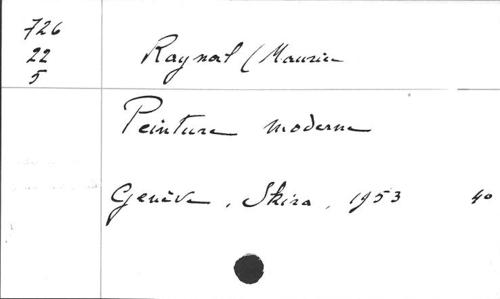 726
22
5
Raynal (Maurice
Peinture moderne
Genève, Skira, 1953 40